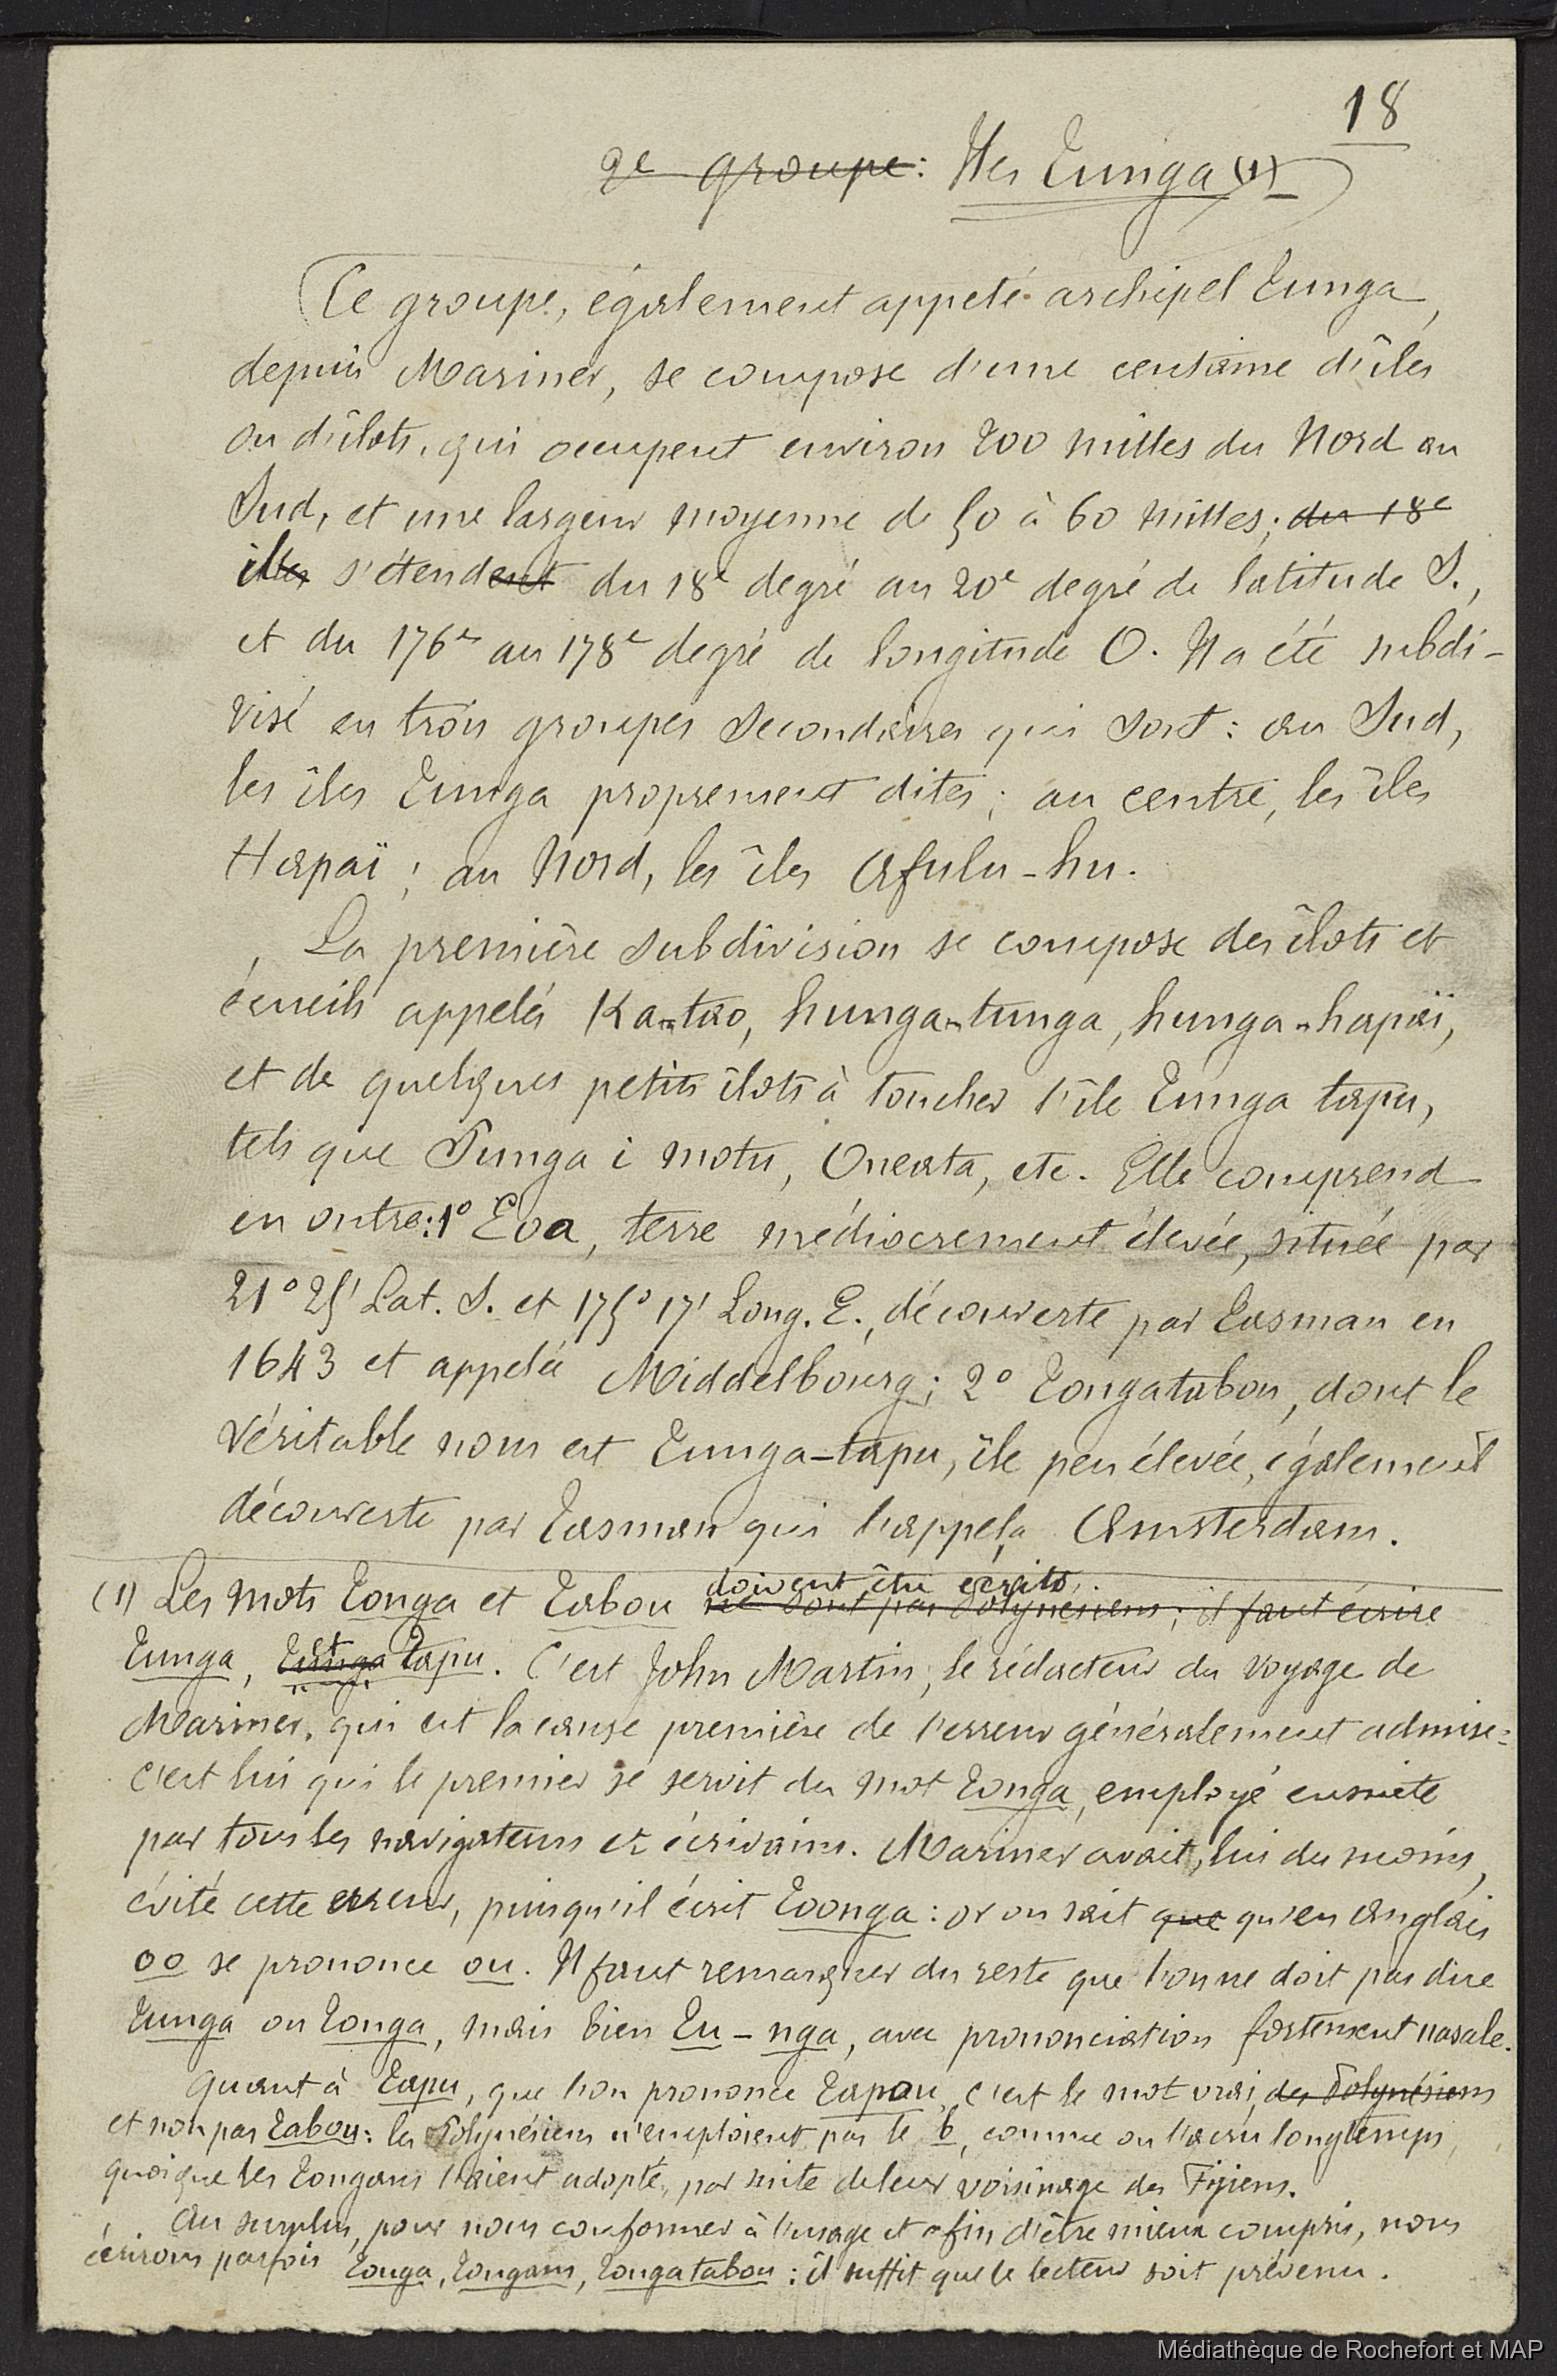 18
2e groupe : Iles Tunga (1)
Ce groupe, également appelé archipel Tunga,
depuis Mariner, se compose d'une centaine d'îles
ou d'îlots, qui occupent environ 200 milles du Nord au
Sud, et une largeur moyenne de 50 à 60 milles; du 18e
il s'étend du 18e degré au 20e degré de latitude S.,
et du 176e au 178e degré de longitude O. Il a été subdi-
visé en trois groupes secondaires qui sont : au Sud,
les îles Tunga proprement dites; au centre, les îles
Hapaï; au Nord, les îles Afulu-hu.
La première subdivision se compose des îlots et
écueils appelés Ka-tao, hunga-tunga, hunga-hapaï,
et de quelques petits îlots à toucher l'île Tunga tapu,
tels que Punga i motu, Oneata, etc. Elle comprend
en outre : 1° Eoa, terre médiocrement élevée, située par
21° 25' Lat. S. et 175° 17' Long. E., découverte par Tasman en
1643 et appelée Middelbourg; 2° Tongatabou, dont le
véritable nom est Tunga-tapu, île peu élevée, également
découverte par Tasman qui l'appela Amsterdam.
(1) Les mots Tonga et Tabou doivent être écrits
ne sont pas Polynésiens; il faut écrire
Tunga, et Tapu. C'est John Martin, le rédacteur du voyage de
Mariner, qui est la cause première de l'erreur généralement admise :
c'est lui qui le premier se servit du mot Tonga, employé ensuite
par tous les navigateurs et écrivains. Mariner avait, lui du moins,
évité cette erreur, puisqu'il écrit Toonga : or on sait que qu'en anglais
oo se prononce ou. Il faut remarquer du reste que l'on ne doit pas dire
Tunga ou Tonga, mais bien Tu-nga, avec prononciation fortement nasale.
Quant à Tapu, que l'on prononce Tapou, c'est le mot vrai, des Polynésiens
et non pas Tabou : les Polynésiens n'emploient pas le b, comme on l'a cru longtemps,
quoique les Tongans l'aient adopté, par suite de leur voisinage des Fijiens.
Au surplus, pour nous conformer à l'usage et afin d'être mieux compris, nous
écrirons parfois Tonga, Tongans, Tongatabou : il suffit que le lecteur soit prévenu.
Médiathèque de Rochefort et MAP